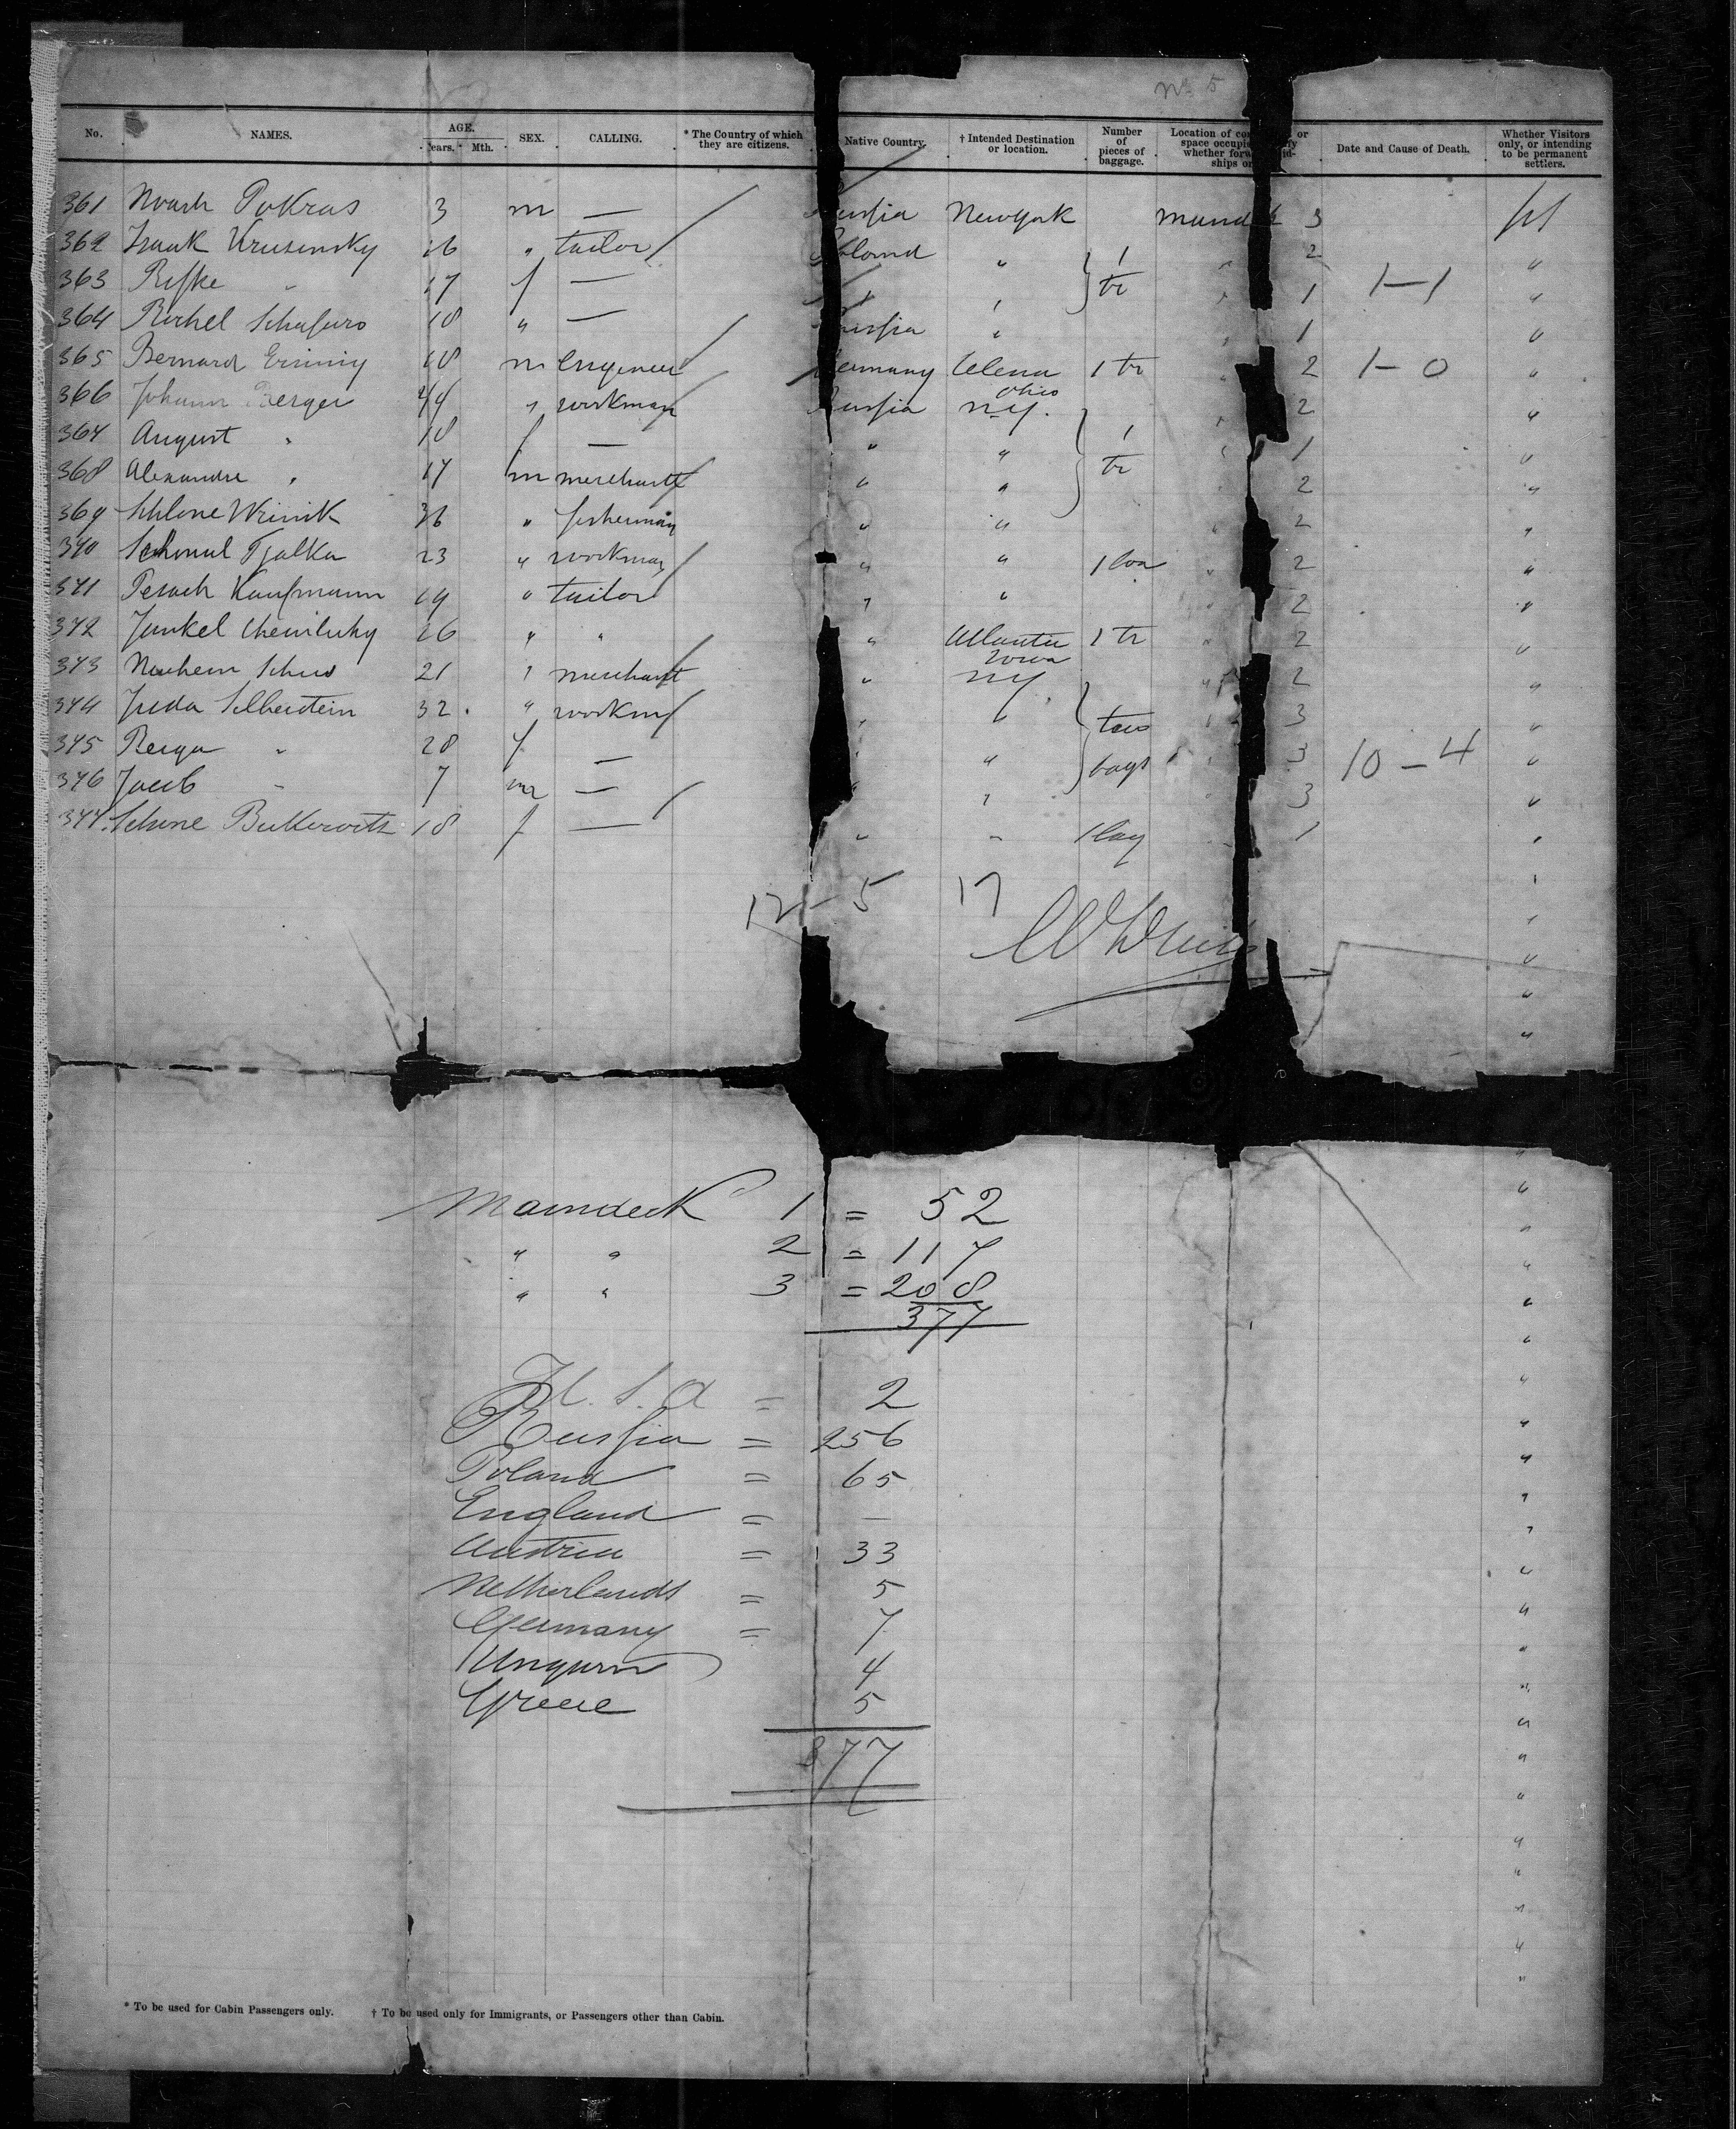 No 5
No. NAMES. AGE. Years. Mth. SEX. CALLING. * The Country of which they are citizens. Native Country. † Intended Destination or location. Number of pieces of baggage. Location of space whether ships Date and Cause of Death. Whether Visitors only, or intending to be permanent settlers.
361 Noach Pokras 3 m — Russia New York 3
362 Isaak 26 " tailor Poland " 1 " 2
363 Rifke " f — " " tr " 1 1–1 "
364 Rochel Schafuro 18 " — Russia " " 1 "
365 Bernard m Engineer Germany 1 tr " 2 1–0 "
Ohio
366 Johann Berger 44 " workman Russia N.Y. " 2 "
367 August " 18 f — " " 1 " 1 "
368 Alexandre " 17 m merchant " " tr " 2 "
369 Schlone Wrinik 36 " fisherman " " " 2 "
370 Schmul Tjalka 23 " workman " " 1 " 2 "
371 Pesach Kaufmann 19 " tailor " " " 2 "
372 Jankel 26 " " " Atlantic 1 tr " 2 "
Iowa
373 Nachem Schus 21 " merchant " NY " 2 "
374 Juda Silberstein 32 " workm " " two " 3 "
375 " 28 f — " " bags " 3 10–4 "
376 Jacob " 7 m — " " " 3 "
377. Schine 18 f — " " 1 bag " 1 "
12 – 5 17
Maindeck 1 = 52
" " 2 = 117
" " 3 = 208
377
U. S. A = 2
Russia = 256
Poland = 65
England = —
Austria = 33
Netherlands = 5
Germany = 7
Ungarn 4
Greece 5
377
* To be used for Cabin Passengers only. † To be used only for Immigrants, or Passengers other than Cabin.